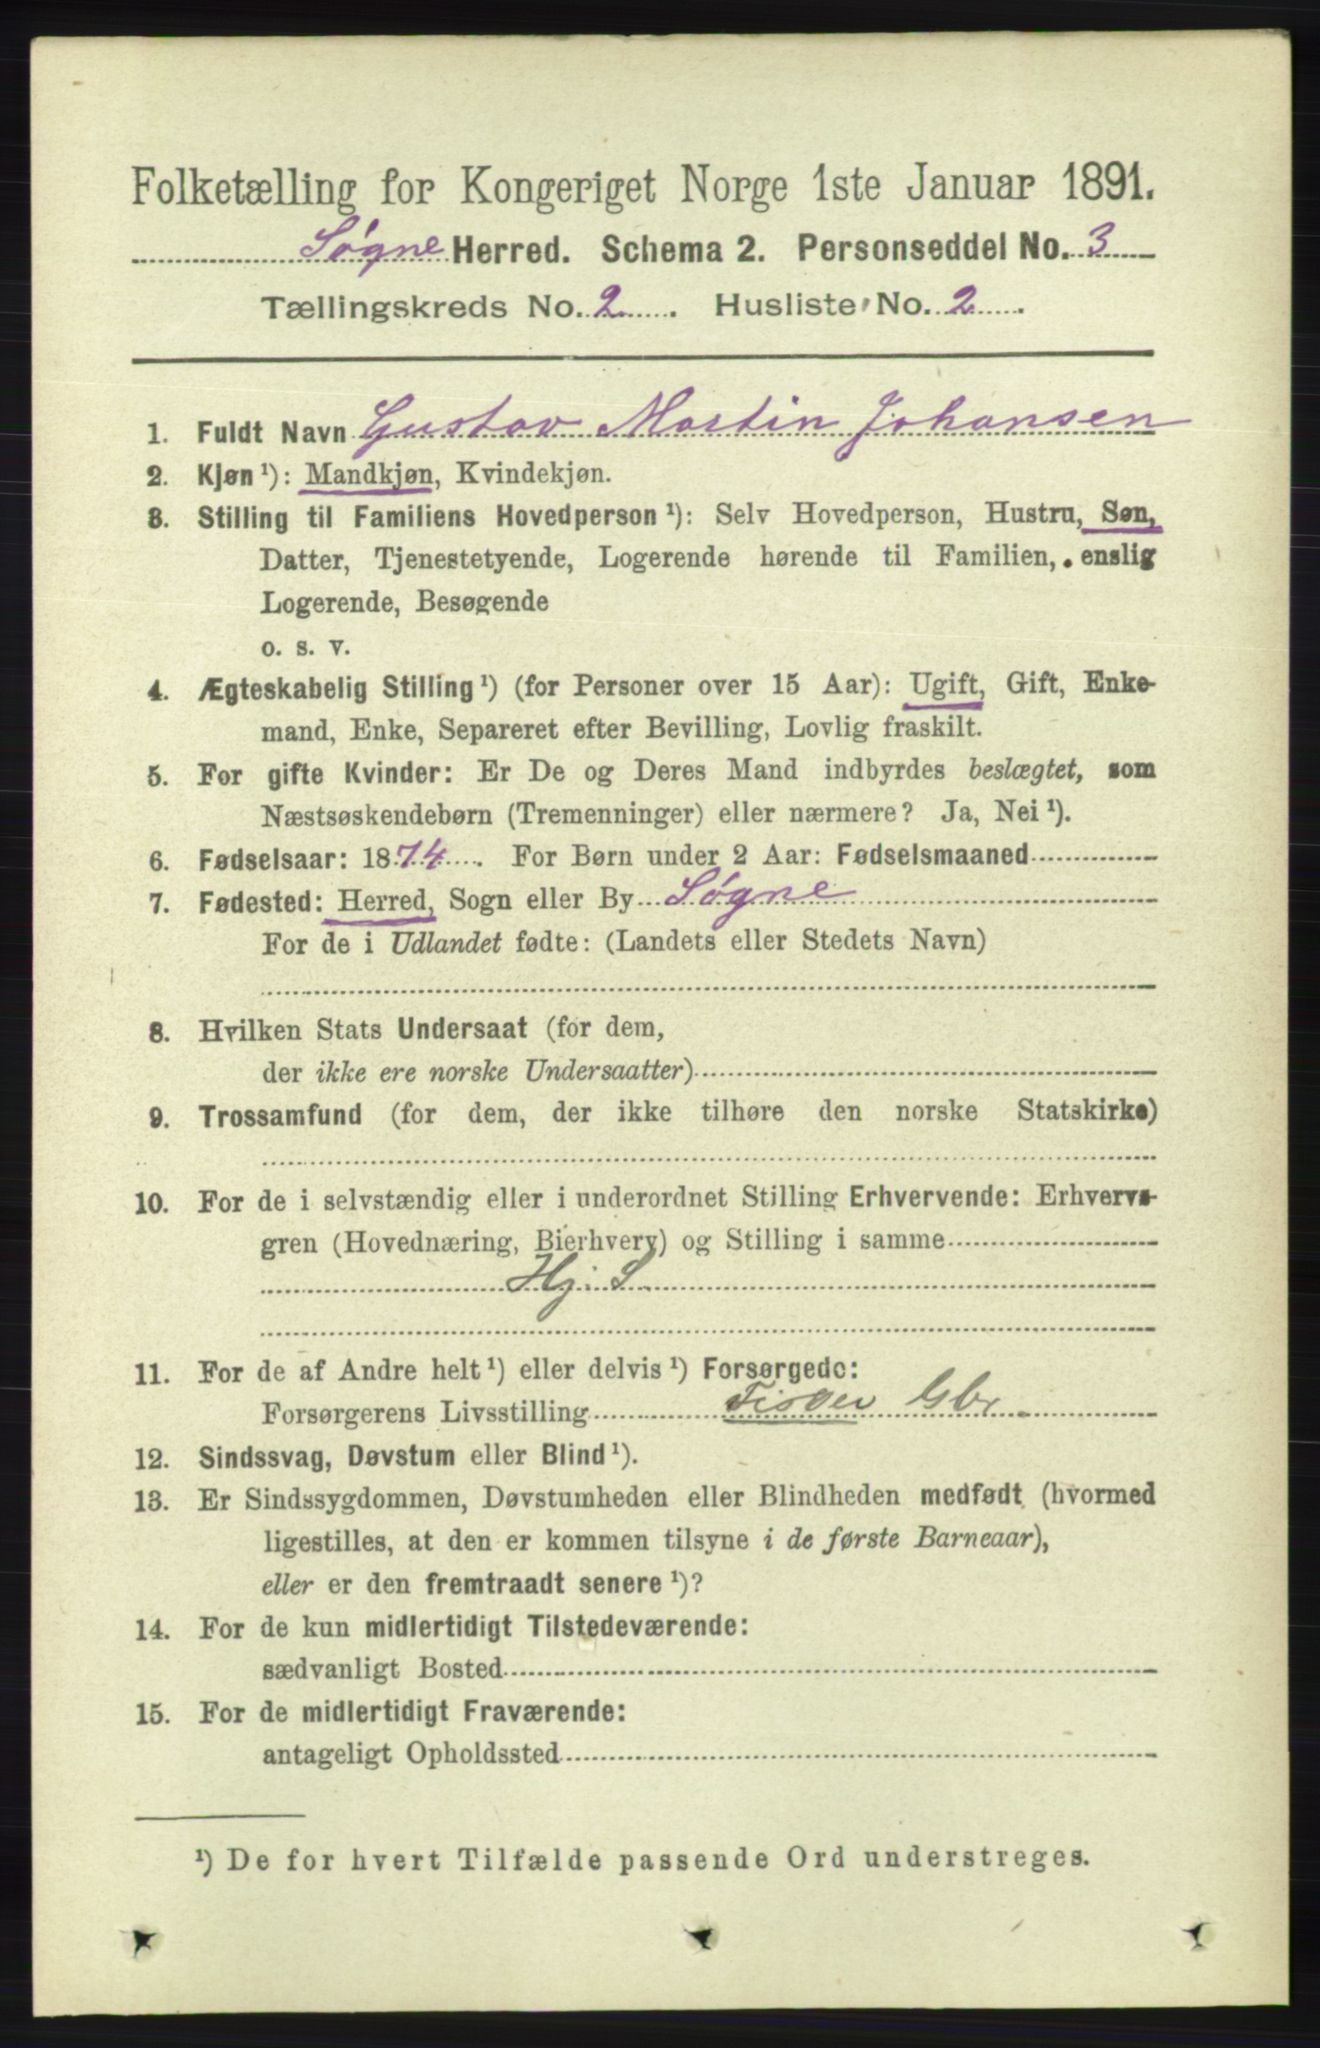 Folketælling for Kongeriget Norge 1ste Januar 1891.
Søgne Herred. Schema 2. Personseddel No. 3
Tællingskreds No. 2. Husliste No. 2
1. Fuldt Navn Gustav Martin Johansen
2. Kjøn ¹): Mandkjøn, Kvindekjøn.
3. Stilling til Familiens Hovedperson ¹): Selv Hovedperson, Hustru, Søn,
Datter, Tjenestetyende, Logerende hørende til Familien, enslig
Logerende, Besøgende
o. s. v.
4. Ægteskabelig Stilling ¹) (for Personer over 15 Aar): Ugift, Gift, Enke-
mand, Enke, Separeret efter Bevilling, Lovlig fraskilt.
5. For gifte Kvinder: Er De og Deres Mand indbyrdes beslægtet, som
Næstsøskendebørn (Tremenninger) eller nærmere? Ja, Nei ¹).
6. Fødselsaar: 1874. For Børn under 2 Aar: Fødselsmaaned
7. Fødested: Herred, Sogn eller By Søgne
For de i Udlandet fødte: (Landets eller Stedets Navn)
8. Hvilken Stats Undersaat (for dem,
der ikke ere norske Undersaatter)
9. Trossamfund (for dem, der ikke tilhøre den norske Statskirke)
10. For de i selvstændig eller i underordnet Stilling Erhvervende: Erhvervs-
gren (Hovednæring, Bierhverv) og Stilling i samme
Hj. S
11. For de af Andre helt ¹) eller delvis ¹) Forsørgede:
Forsørgerens Livsstilling Fisker Gbr.
12. Sindssvag, Døvstum eller Blind ¹).
13. Er Sindssygdommen, Døvstumheden eller Blindheden medfødt (hvormed
ligestilles, at den er kommen tilsyne i de første Barneaar),
eller er den fremtraadt senere ¹)?
14. For de kun midlertidigt Tilstedeværende:
sædvanligt Bosted
15. For de midlertidigt Fraværende:
antageligt Opholdssted
¹) De for hvert Tilfælde passende Ord understreges.